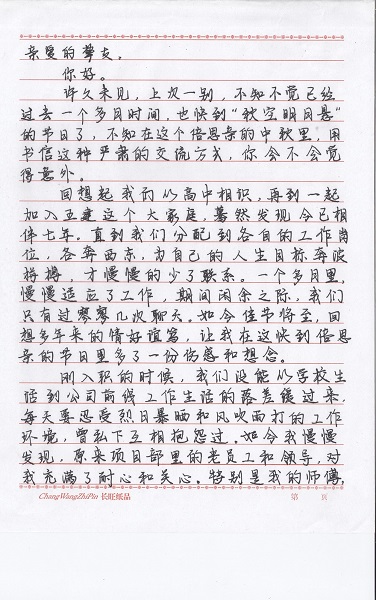 亲爱的挚友。
你好。
许久未见,上次一别,不知不觉已经
过去一个多月时间,也快到“秋空明月悬”
的节日了,不知在这个倍思亲的中秋里,用
书信这种严肃的交流方式,你会不会觉
得意外。
回想起我们从高中相识,再到一起
加入五建这个大家庭,蓦然发现今已相
伴七年。直到我们分配到各自的工作岗
位,各奔西东,为自己的人生目标奔波
拼搏,才慢慢的少了联系。一个多月里,
慢慢适应了工作,期间闲余之际,我们
只有过寥寥几次聊天。如今佳节将至,回
想多年来的情好谊笃,让我在这快到倍思
亲的节日里多了一份伤感和想念。
刚入职的时候,我们没能从学校生
活到公司前线工作生活的落差缓过来,
每天要忍受烈日暴晒和风吹雨打的工作
环境,曾私下互相抱怨过。如今我慢慢
发现,原来项目部里的老员工和领导,对
我充满了耐心和关心。特别是我的师傅,
ChangWangZhiPin 长旺纸品 第 页